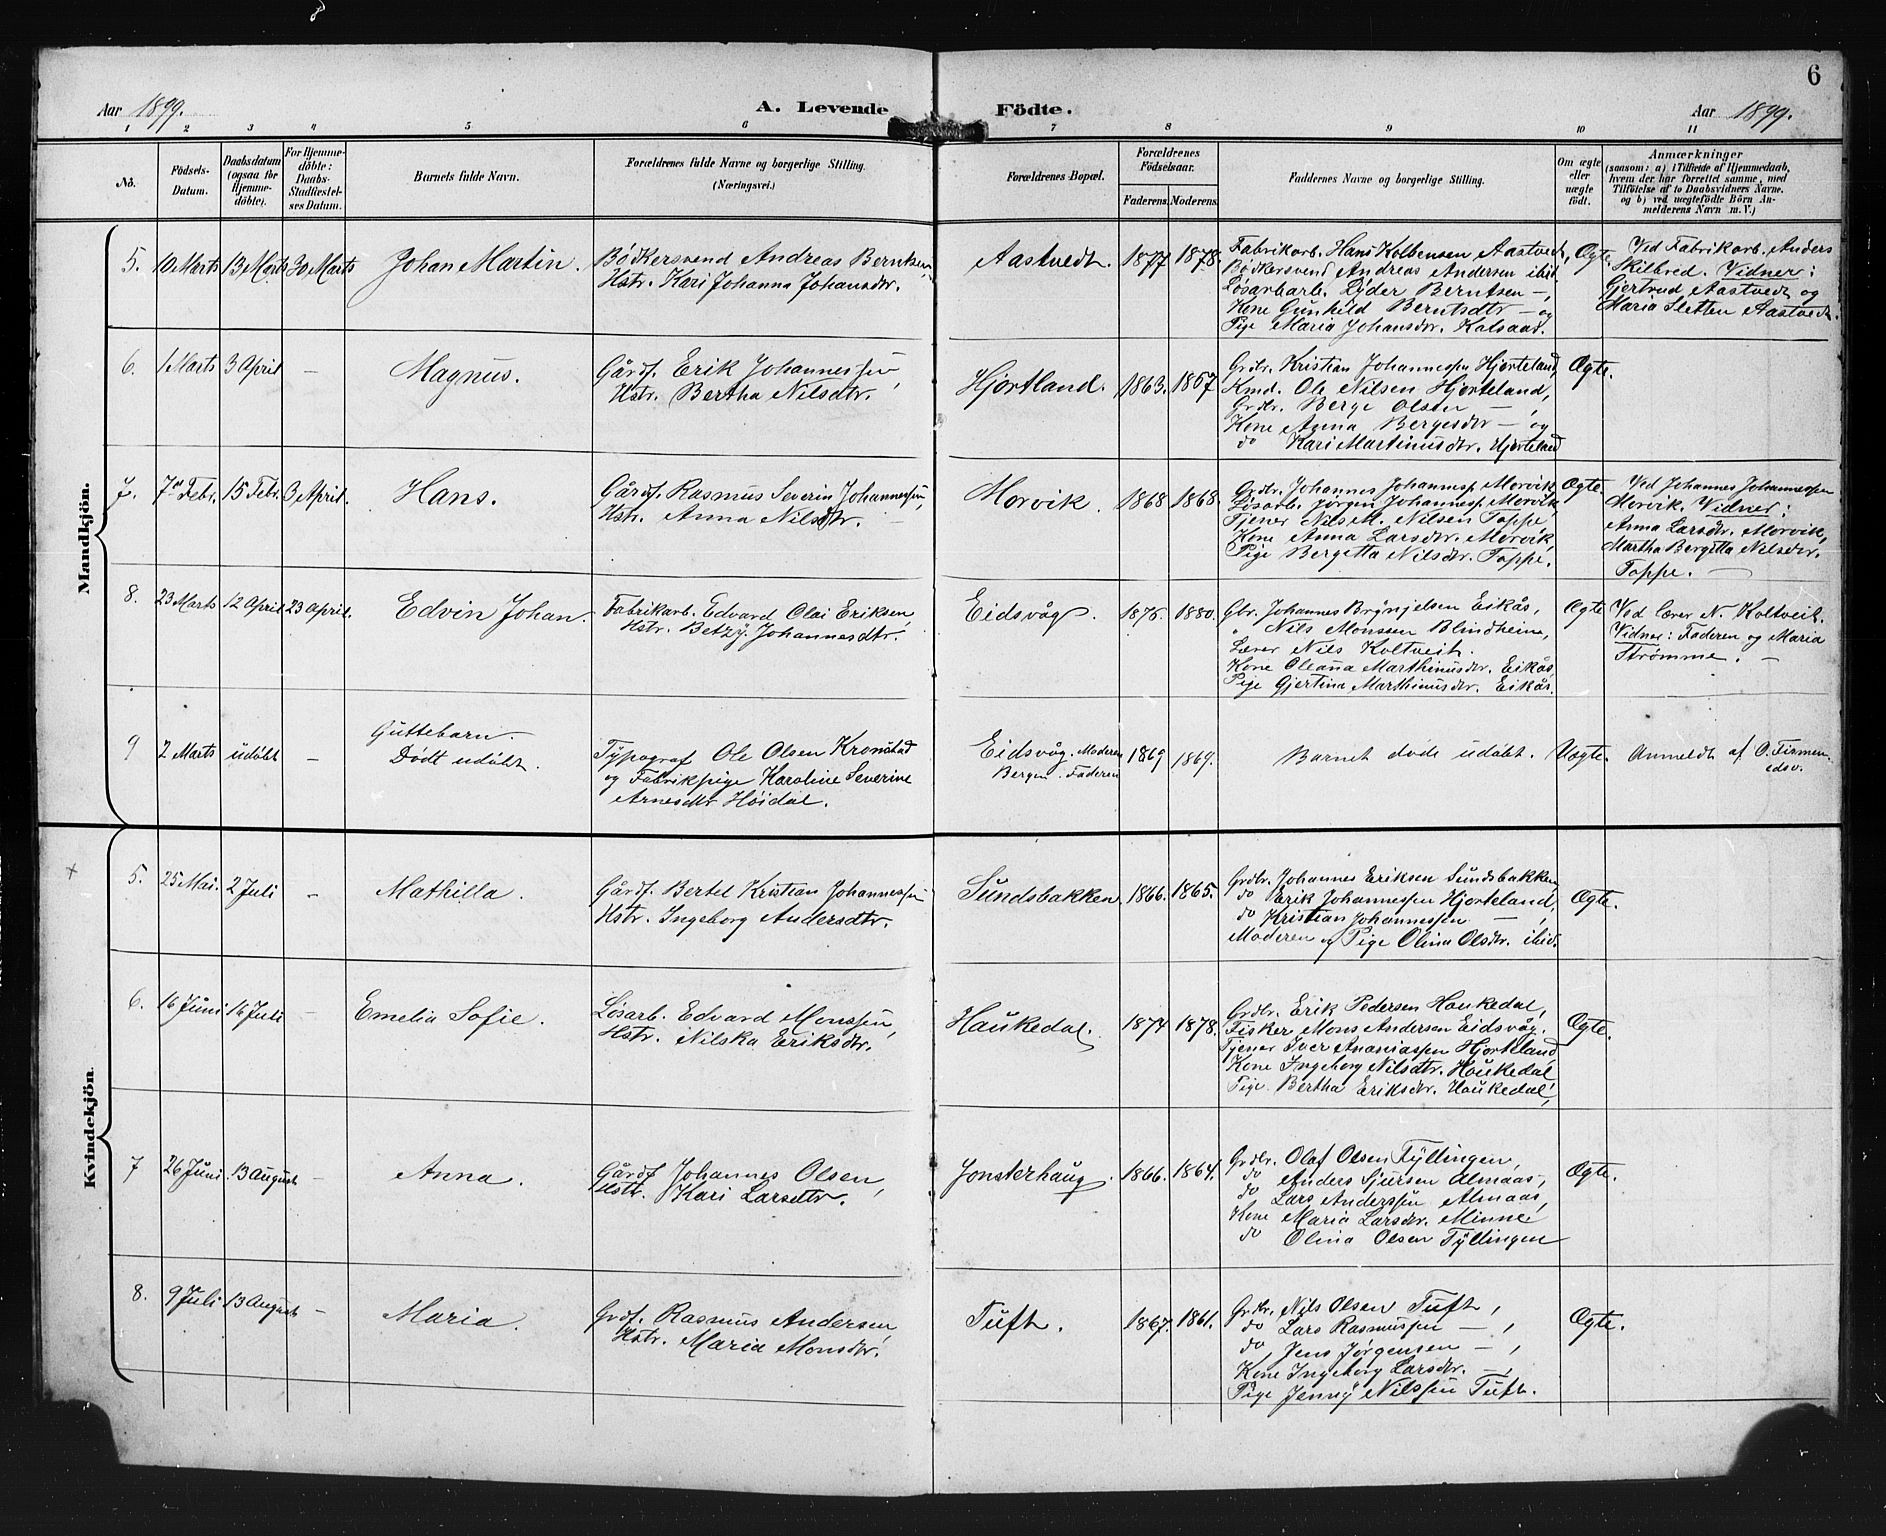 6
Aar 1899.
A. Levende Födte.
Aar 1899.
1 2 3 4 5 6 7 8 9 10 11
No.
Födsels-
Datum.
Daabsdatum
(ogsaa for
Hjemme-
döbte).
For Hjemme-
döbte:
Daabs-
Stadfæstel-
ses Datum.
Barnets fulde Navn.
Forældrenes fulde Navne og borgerlige Stilling.
(Næringsvei.)
Forældrenes Bopæl.
Forældrenes
Födselsaar.
Faderens. Moderens.
Faddernes Navne og borgerlige Stilling.
Om ægte
eller
uægte
födt.
Anmærkninger
(saasom: a) i Tilfælde af Hjemmedaab,
hvem der har forrettet samme, med
Tilföielse af to Daabsvidners Navne.
og b) ved uægtefödte Börn An-
melderens Navn m. V.)
Mandkjön.
5. 10 Marts 13 Marts 30 Marts
Johan Martin.
Bødkersvend Andreas Berntsen
Hstr. Kari Johanna Johansdtr.
Aastvedt. 1877 1878.
Fabrikarb. Hans Kolbensen Aastvedt,
Bødkersvend Andreas Andersen ibid.
Løsarbarb. Lyder Berntsen —,
Kone Gunhild Berntsdtr — og
Pige Maria Johansdr. Kalsaas.
Ægte.
Ved Fabrikarb. Anders
Skilbred. Vidner:
Gjertrud Aastvedt og
Maria Sletten Aastvedt.
6. 1 Marts 3 April —
Magnus.
Gårdf. Erik Johannessen,
Hstr. Bertha Nilsdtr.
Hjortland. 1863. 1867
Grdbr. Kristian Johannessen Hjorteland,
Kmd. Ole Nilsen Hjorteland,
Grdbr. Berge Olsen —,
Kone Anna Bergesdtr — og
do Kari Martinusdtr. Hjorteland
Ægte.
7. 7de Febr. 15 Febr. 3 April.
Hans.
Gårdf. Rasmus Severin Johannessen,
Hstr. Anna Nilsdtr. —
Morvik. 1868 1868.
Grdbr. Johannes Johannessen Morvik
Løsarb. Jørgen Johannessen Morvik,
Tjener Nils M. Nilsen Toppe
Kone Anna Larsdtr. Morvik,
Pige Bergitta Nilsdtr. Toppe.
Ægte.
Ved Johannes Johannessen
Morvik. Vidner:
Anna Larsdtr. Morvik,
Martha Bergitta Nilsdtr.
Toppe. —
8. 23 Marts 12 April 23 April.
Edvin Johan.
Fabrikarb. Edvard Olai Eriksen,
Hstr. Betzy Johannesdtr.
Eidsvåg. 1875. 1880.
Gbr. Johannes Brynjelsen Eikås,
" Nils Monssen Blindheim,
Lærer Nils Koltveit.
Kone Oleana Marthinusdr. Eikås
Pige Gjertina Marthinusdr. Eikås.
Ægte
Ved lærer N. Koltveit.
Vidner: Faderen og Maria
Strømme. —
9 2 Marts udøbt —
Guttebarn.
Dødt udøbt.
Typograf Ole Olsen Kronstad
og Fabrikpige Karoline Severine
Arnesdtr Høidal.
Eidsvåg. Moderen
Bergen. Faderen
1869 1869.
Barnet døde udøbt.
Uægte.
Anmeldt af O. Firmen
edsv.
Kvindekjön.
5. 25 Mai. 2 Juli —
Mathilla.
Gårdf. Bertel Kristian Johannessen
Hstr. Ingeborg Andersdtr.
Sundsbakken 1866. 1865.
Grdbr. Johannes Eriksen Sundsbakken,
do Erik Johannessen Hjorteland,
do Kristian Johannessen —
Moderen og Pige Olina Olsdtr. ibid.
Ægte.
6. 16 Juni 16 Juli —
Emelia Sofie.
Løsarb. Edvard Monssen,
Hstr. Nilska Eriksdtr.
Haukedal. 1874 1878.
Grdbr. Erik Pedersen Haukedal,
Fisker Mons Andersen Eidsvåg.
Tjener Iver Ananiassen Hjorteland
Kone Ingeborg Nilsdtr. Haukedal
Pige. Bertha Eriksdtr. Haukedal,
Ægte.
7 26 Juni 13 August —
Anna.
Gårdf Johannes Olsen,
Hstr. Kari Larsdtr.
Jonsterhaug. 1866. 1864.
Grdbr. Olaf Olsen Tyllingen,
do Anders Sjursen Almaas,
do Lars Anderssen Almaas,
Kone Maria Larsdtr. Minne
do Olina Olsen Tyllingen
Ægte.
8. 9 Juli 13 August —
Maria.
Grdf. Rasmus Andersen
Hstr. Maria Monsdtr.
Tuft. 1867. 1861.
Grdbr. Nils Olsen Tuft,
do Lars Rasmussen —,
do Jens Jørgensen —,
Kone Ingeborg Larsdtr. —,
Pige Jenny Nilssen Tuft.
Ægte.